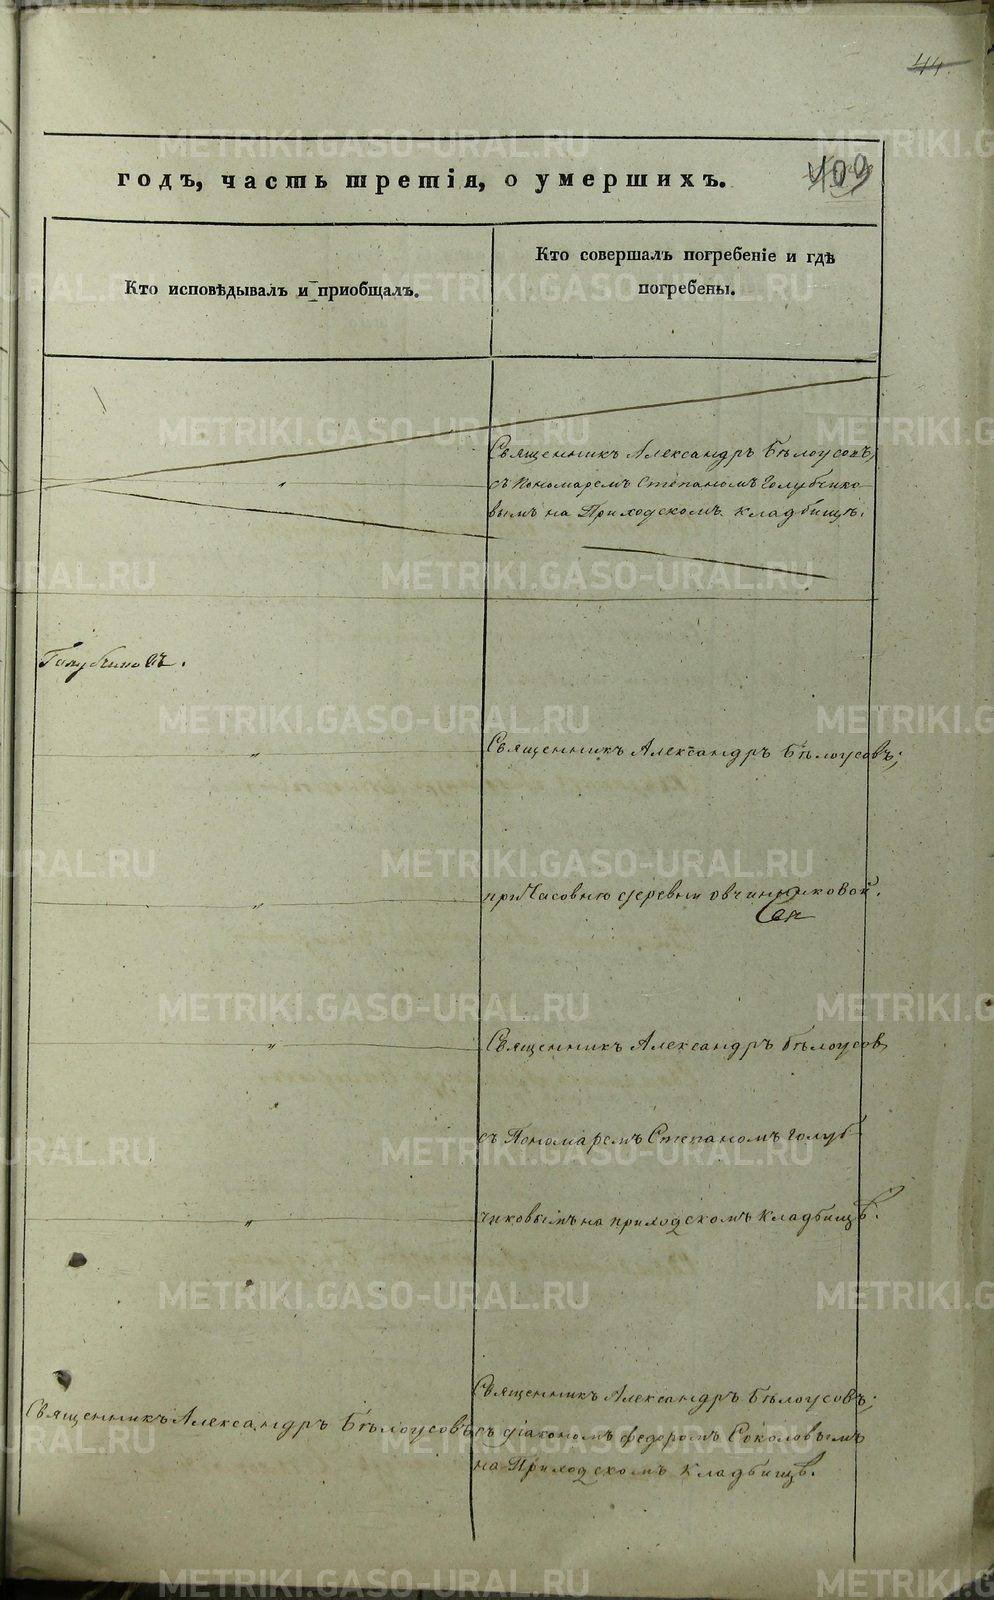 44.
409
годъ, часть третія, о умершихъ.
Кто исповѣдывалъ и приобщалъ.
Кто совершалъ погребеніе и гдѣ
погребены.
Священникъ Александръ Бѣлоусовъ,
съ Пономаремъ Степаномъ Голубчико
вымъ на Приходскомъ кладбищѣ.
Голубчиковъ.
Священникъ Александръ Бѣлоусовъ;
при Часовню деревни Овчинниковой.
Священникъ Александръ Бѣлоусов
съ Пономаремъ Степаномъ Голуб
чиковымъ на приходскомъ кладбищѣ.
Священникъ Александръ Бѣлоусовъ
Священникъ Александръ Бѣлоусовъ;
съ діакономъ Федоромъ Соколовымъ
на Приходскомъ кладбищѣ.
METRIKI.GASO-URAL.RU